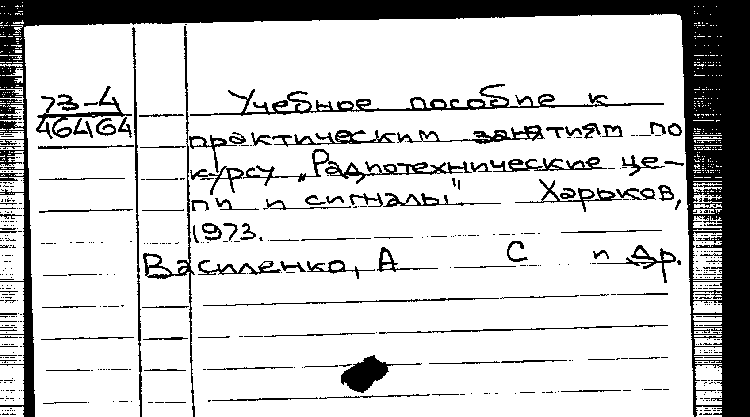 73-4
46464
Учебное пособие к
практическим занятиям по
курсу „Радиотехнические це-
пи и сигналы". Харьков,
1973.
Василенко, А С и др.